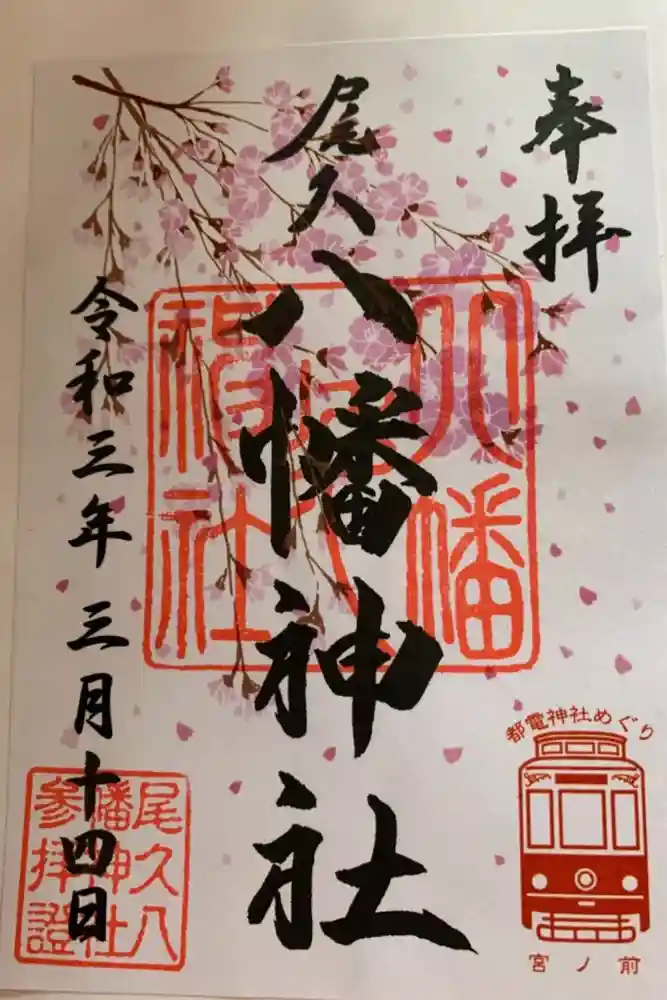 奉拝
尾久
八幡神社
令和三年 三月十四日
尾久八
幡神社
参拝證
都電神社めぐり
宮ノ前